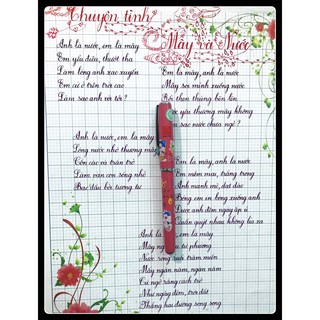 Chuyện tình
Mây và Nước
Anh là nước, em là mây
Em yêu điệu, thướt tha
Làm lòng anh xao xuyến
Em cứ ở trên trời cao
Làm sao anh với tới?
Em là mây, anh là nước
Mây soi mình xuống nước
Rồi thẹn thùng bẽn lẽn
yêu thương mây không
sao nước chưa ngỏ?
Anh là nước, em là mây
Lòng nước nhớ thương mây
Cồn cào và trăn trở
Làm nên con sóng nhỏ
Bạc đầu bởi tương tư
Em là mây, anh là nước
Em mềm mại, trắng trong
Anh mạnh mẽ, dạt dào
Bóng em in lòng xanh anh
Nước đêm ngày ấp ủ
Quấn quýt nhau không lìa xa
Anh là em là mây
Mây tứ phương
Nước trăm miền
Mây ngàn năm, ngàn năm
Cứ ngỡ rằng cách trở
Như ngày đêm, trời đất
Thẳng hai đường song song